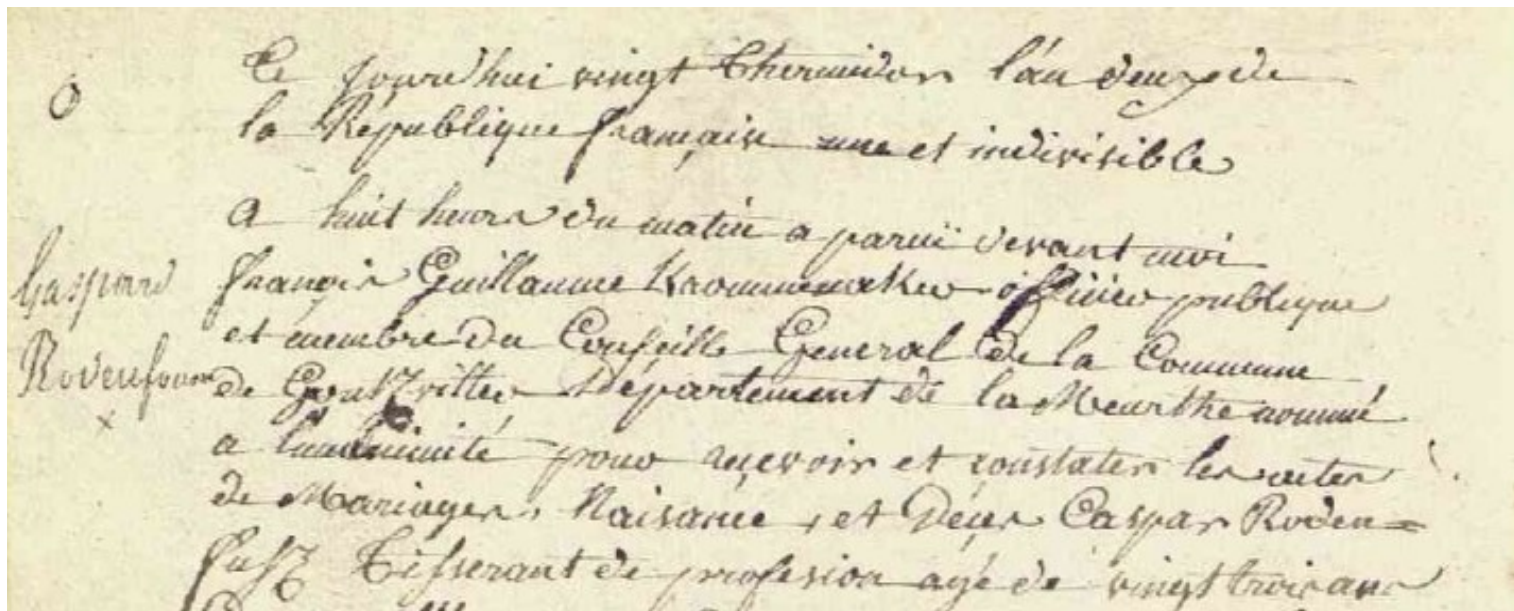 Ce jourd'hui vingt Thermidor l'an deuxe de
la République françaisse une et indivisible
a huit heurs du matin a paruï devant moi
françois Guillaume Krommenacker officier publique
et membre du Conseille General de la Commune
de Gontzviller Département de la Meurthe nommé
a l'unanimité pour reçevoir et constater les actes
de Mariages, Naisance, et Déçes Caspar Roden=
fusz Tisserant de profesion agé de vingt trois ans
Gaspard